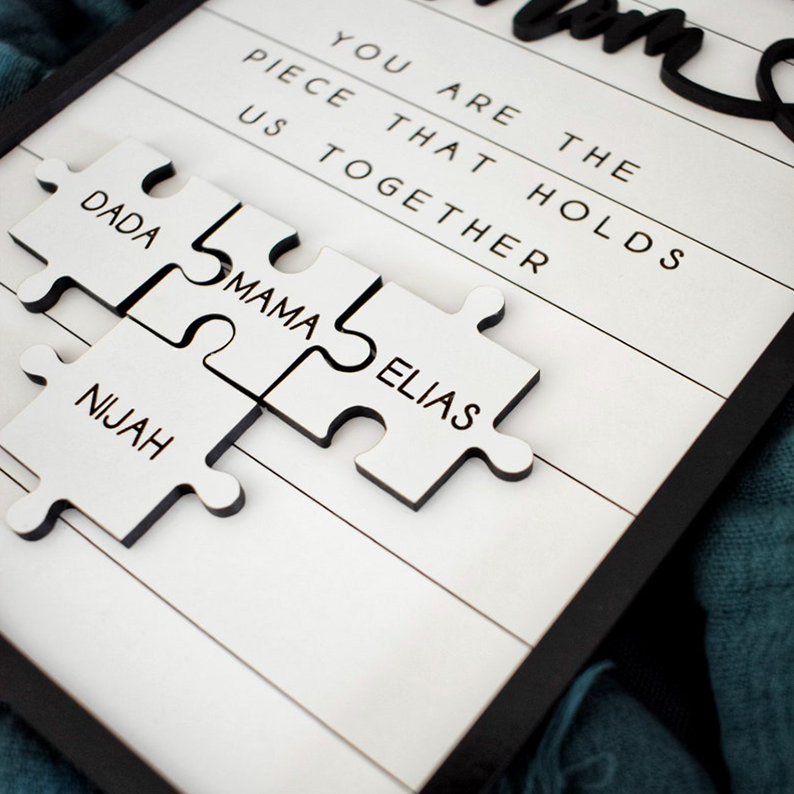 Mom
YOU ARE THE
PIECE THAT HOLDS
US TOGETHER
DADA
MAMA
ELIAS
NIJAH